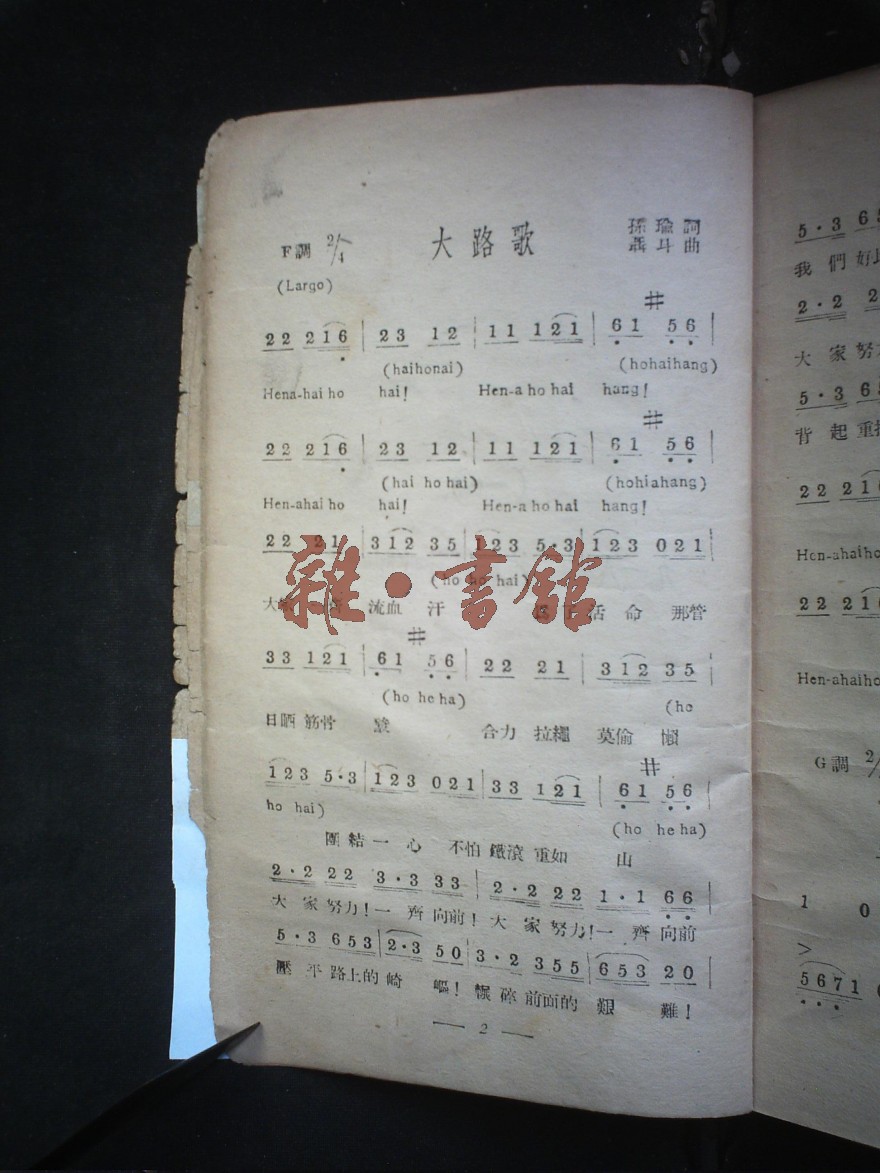 大路歌
孫瑜詞
聶斗曲
F調 2/4
(Largo)
22 2 1 6 | 2 3 1 2 | 1 1 1 2 1 | 6 1 #5 6 |
(haihonai) (hohaihang)
Hena-hai ho hai! Hen-a ho hai hang!
22 2 1 6 | 2 3 1 2 | 1 1 1 2 1 | 6 1 #5 6 |
(hai ho hai) (hohiahang)
Hen-ahai ho hai! Hen-a ho hai hang!
2 2 2 1 | 3 1 2 3 5 | 1 2 3 5·3 | 1 2 3 0 2 1 |
(ho ho hai)
大 流血 汗 活 命 那管
3 3 1 2 1 | 6 1 #5 6 | 2 2 2 1 | 3 1 2 3 5 |
(ho he ha) (ho
日晒 筋骨 合力 拉繩 莫偷 懶
1 2 3 5·3 | 1 2 3 0 2 1 | 3 3 1 2 1 | 6 1 #5 6 |
ho hai) (ho he ha)
團結一心 不怕 鐵滾 重如 山
2·2 2 2 3·3 3 3 | 2·2 2 2 1·1 6 6
大家努力!一齊向前!大家努力!一齊向前
5·3 6 5 3 | 2·3 5 0 | 3·2 3 5 5 | 6 5 3 2 0 |
壓平路上的崎嶇!輾碎前面的艱難!
— 2 —
雜·書館
5·3 6 5
我們好
2·2 2
大家努
5·3 6
背起重
2 2 2 1
Hen-ahaiho
2 2 2 1
Hen-ahaiho
G調 2/
1 0
>
5 6 7 1